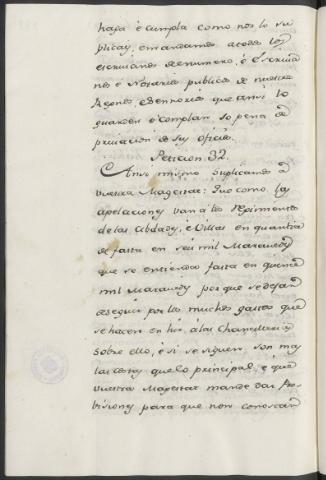 haga é cumpla como nos lo su
plicais, emandamos atodos los
escrivanos denumero, é Escriva
nos é Notarios publicos de nuestros
Reynos, eSennorios que ansi lo
guarden é complan, so pena de
privacion de sus oficios.
Peticion. 32.
Ansi mismo suplicamos á
vuestra Magestat: Que como las
apelaciones van á los regimientos
de las Cibdades, é Villas en quantia
de fasta en seis mil Maravedis
que se entiendan fasta en quince
mil Maravedis porque se dejan
deseguir por los muchos gastos que
se hacen en hir, á las Chancillerias
sobre ello, é si se siguen son mas
las costas que lo principal, é que
vuestra Magestat mande dar Pro
bisiones para que non conoscan